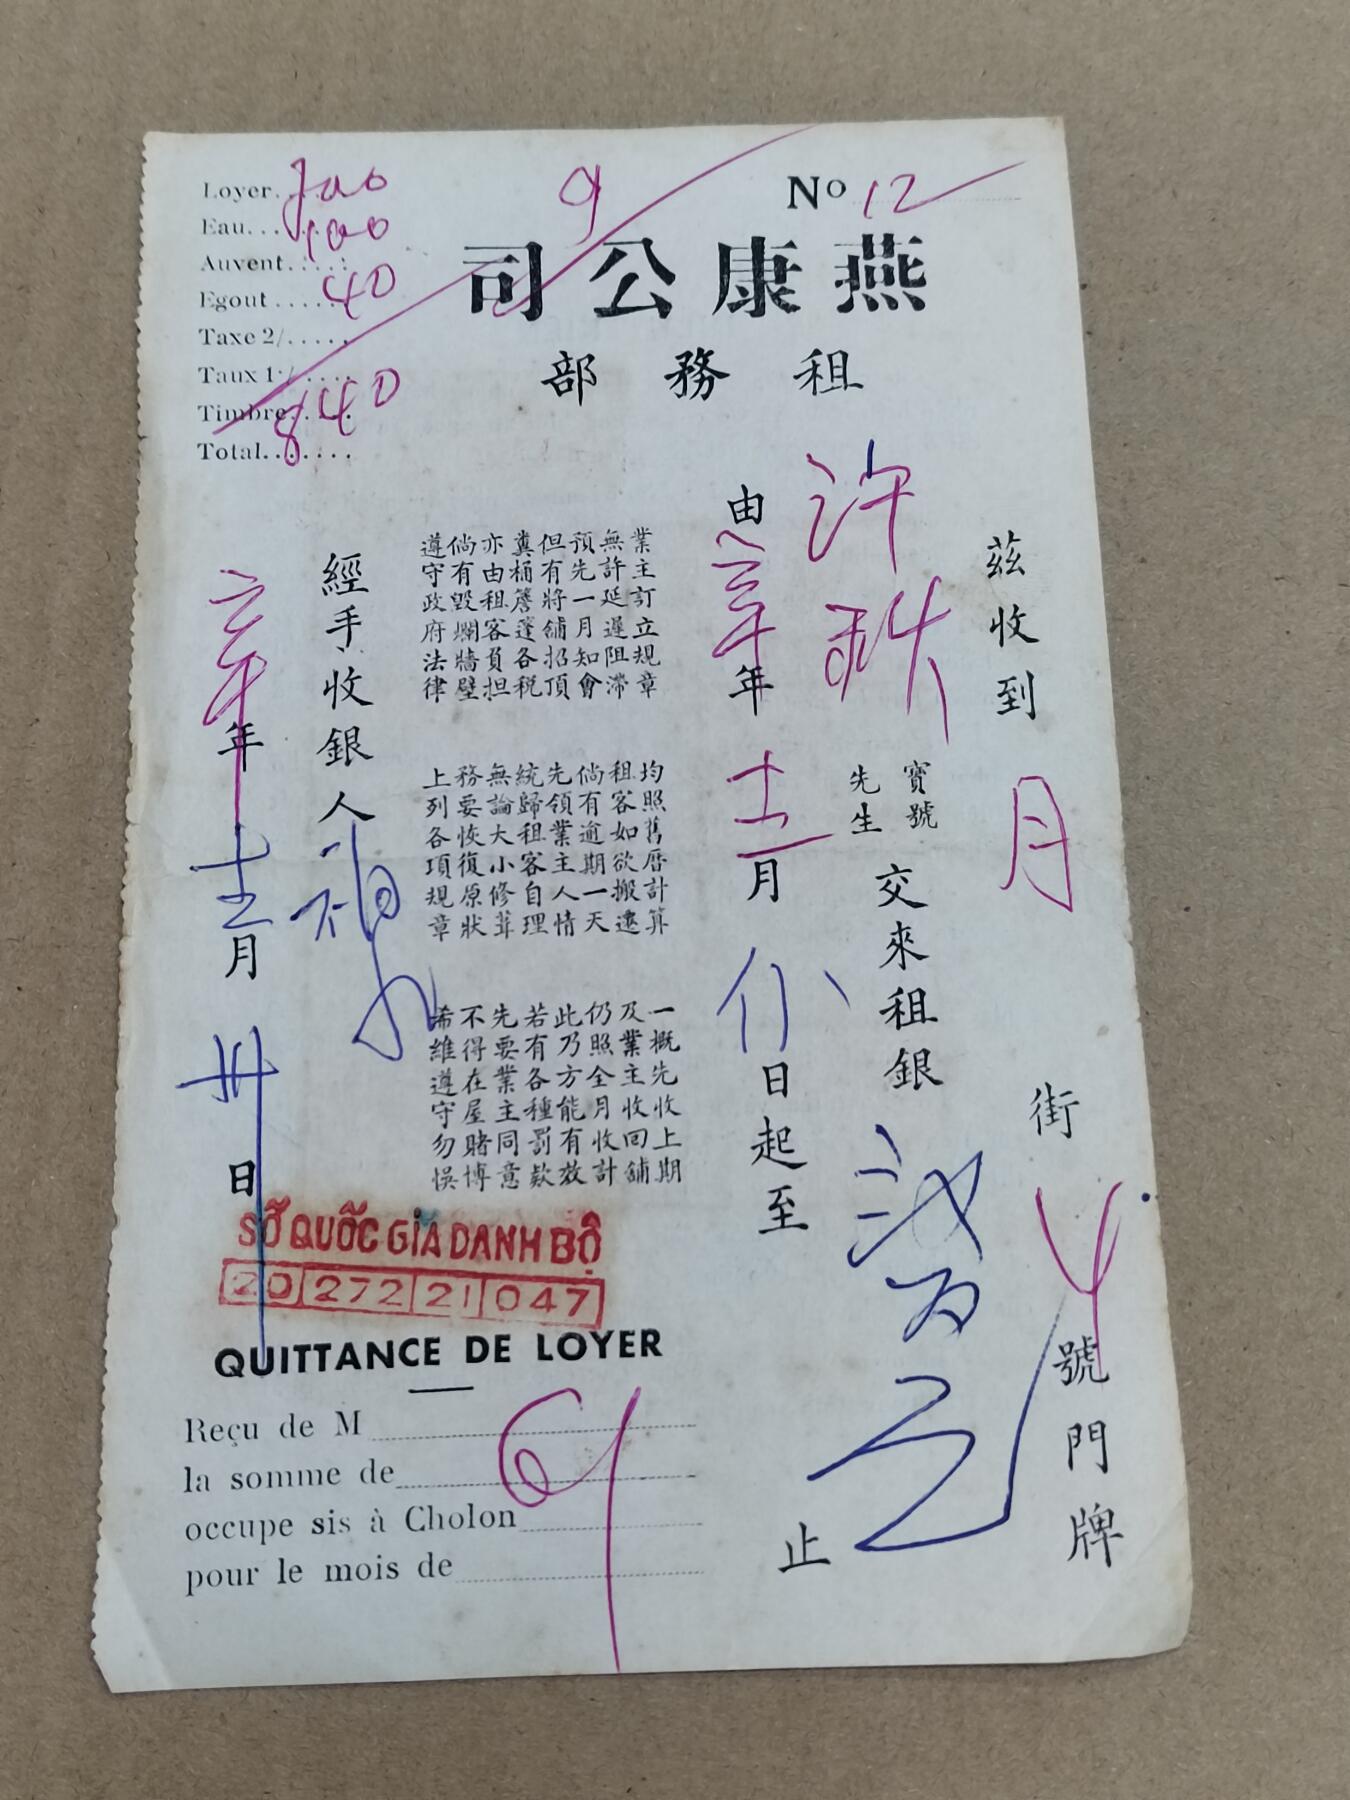 Loyer 700
Eau 100
Auvent
Egout 40
Taxe 2/
Taux 1./
Timbre
Total 840
9
No 12
燕康公司
租務部
茲收到 月 街 號門牌
許 寶號 先生 交來租銀
由 年 十二 月 日起至 止
業主訂立規章 均照舊曆計算 一概先收上期
無許延遲阻滯 租客如欲搬遷 及業主收回舖
預先一月知會 倘有逾期一天 仍照全月收計
但有將舖招頂 先領業主人情 此乃方能有效
糞桶簷蓬各稅 統歸租客自理 若有各種罰款
亦由租客負担 無論大小修葺 先要業主同意
倘有毀爛牆壁 務要恢復原狀 不得在屋賭博
遵守政府法律 上列各項規章 希維遵守勿悞
經手收銀人
年 十二 月 卅 日
SỞ QUỐC GIA DANH BỘ
20 272 21 047
QUITTANCE DE LOYER
Reçu de M
la somme de
occupe sis à Cholon
pour le mois de
61